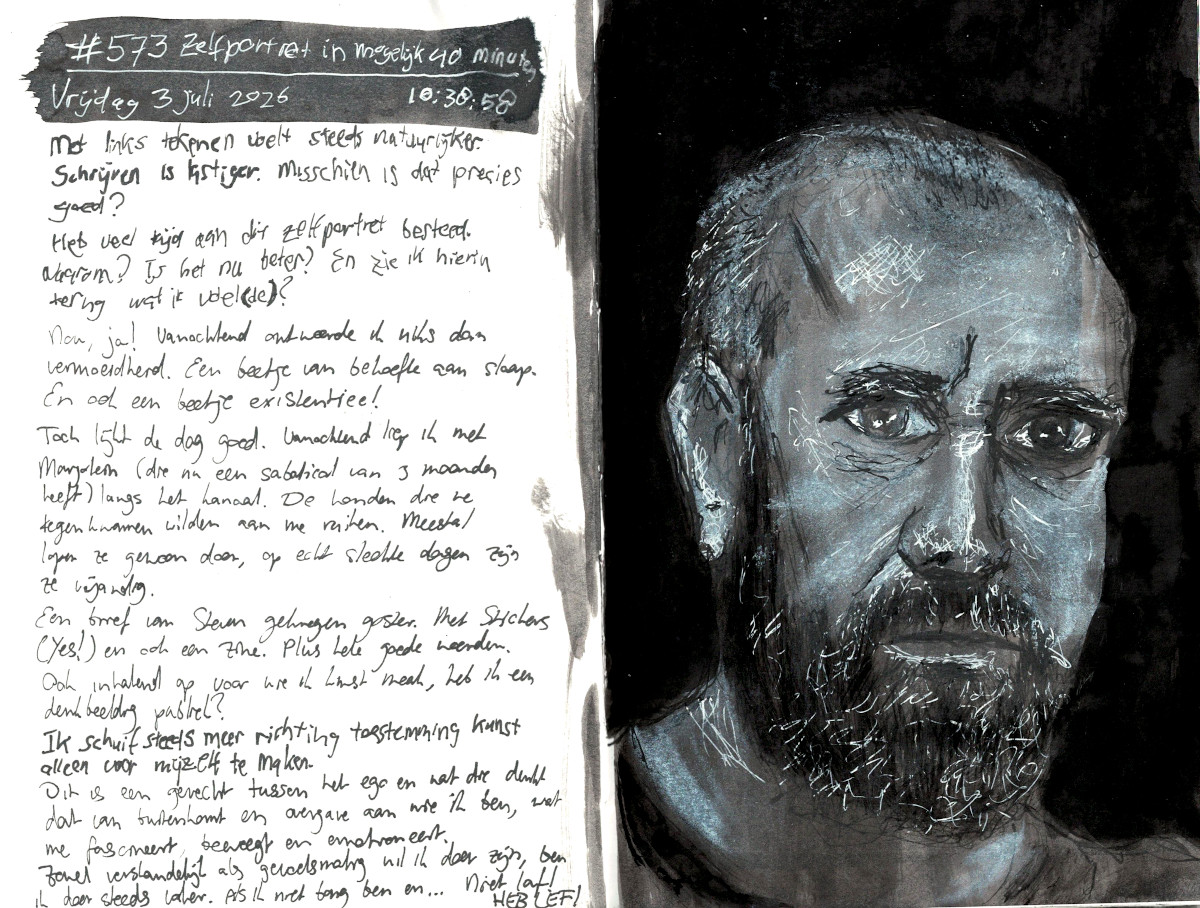 #573 Zelfportret in mogelijk 40 minuten
Vrijdag 3 juli 2026 10:38:58
Met links tekenen voelt steeds natuurlijker.
Schrijven is lastiger. Misschien is dat precies
goed?
Heb veel tijd aan dit zelfportret besteed.
Waarom? Is het nu beter? En zie ik hierin
terug wat ik voel(de)?
Nou, ja! Vanochtend ontwaarde ik niks dan
vermoeidheid. Een beetje van behoefte aan slaap.
En ook een beetje existentieel
Toch lijkt de dag goed. Vanochtend liep ik met
Marjolein (die nu een sabatical van 3 maanden
heeft) langs het kanaal. De honden die we
tegenkwamen wilden aan me ruiken. Meestal
lopen ze gewoon door, op echt slechte dagen zijn
ze vijandig.
Een brief van Steven gekregen gister. Met Stickers
(Yes!) en ook een zine. Plus hele goede woorden.
Ook inhakend op voor wie ik kunst maak, heb ik een
denkbeeldig publiek?
Ik schuif steeds meer richting toestemming kunst
alleen voor mijzelf te maken.
Dit is een gevecht tussen het ego en wat die denkt
dat van buitenkomt en overgave aan wie ik ben, wat
me fascineert, beweegt en emotioneert.
Zowel verstandelijk als gevoelsmatig wil ik daar zijn, ben
ik daar steeds vaker. Als ik niet bang ben en... Niet laf!
HEB LEF!